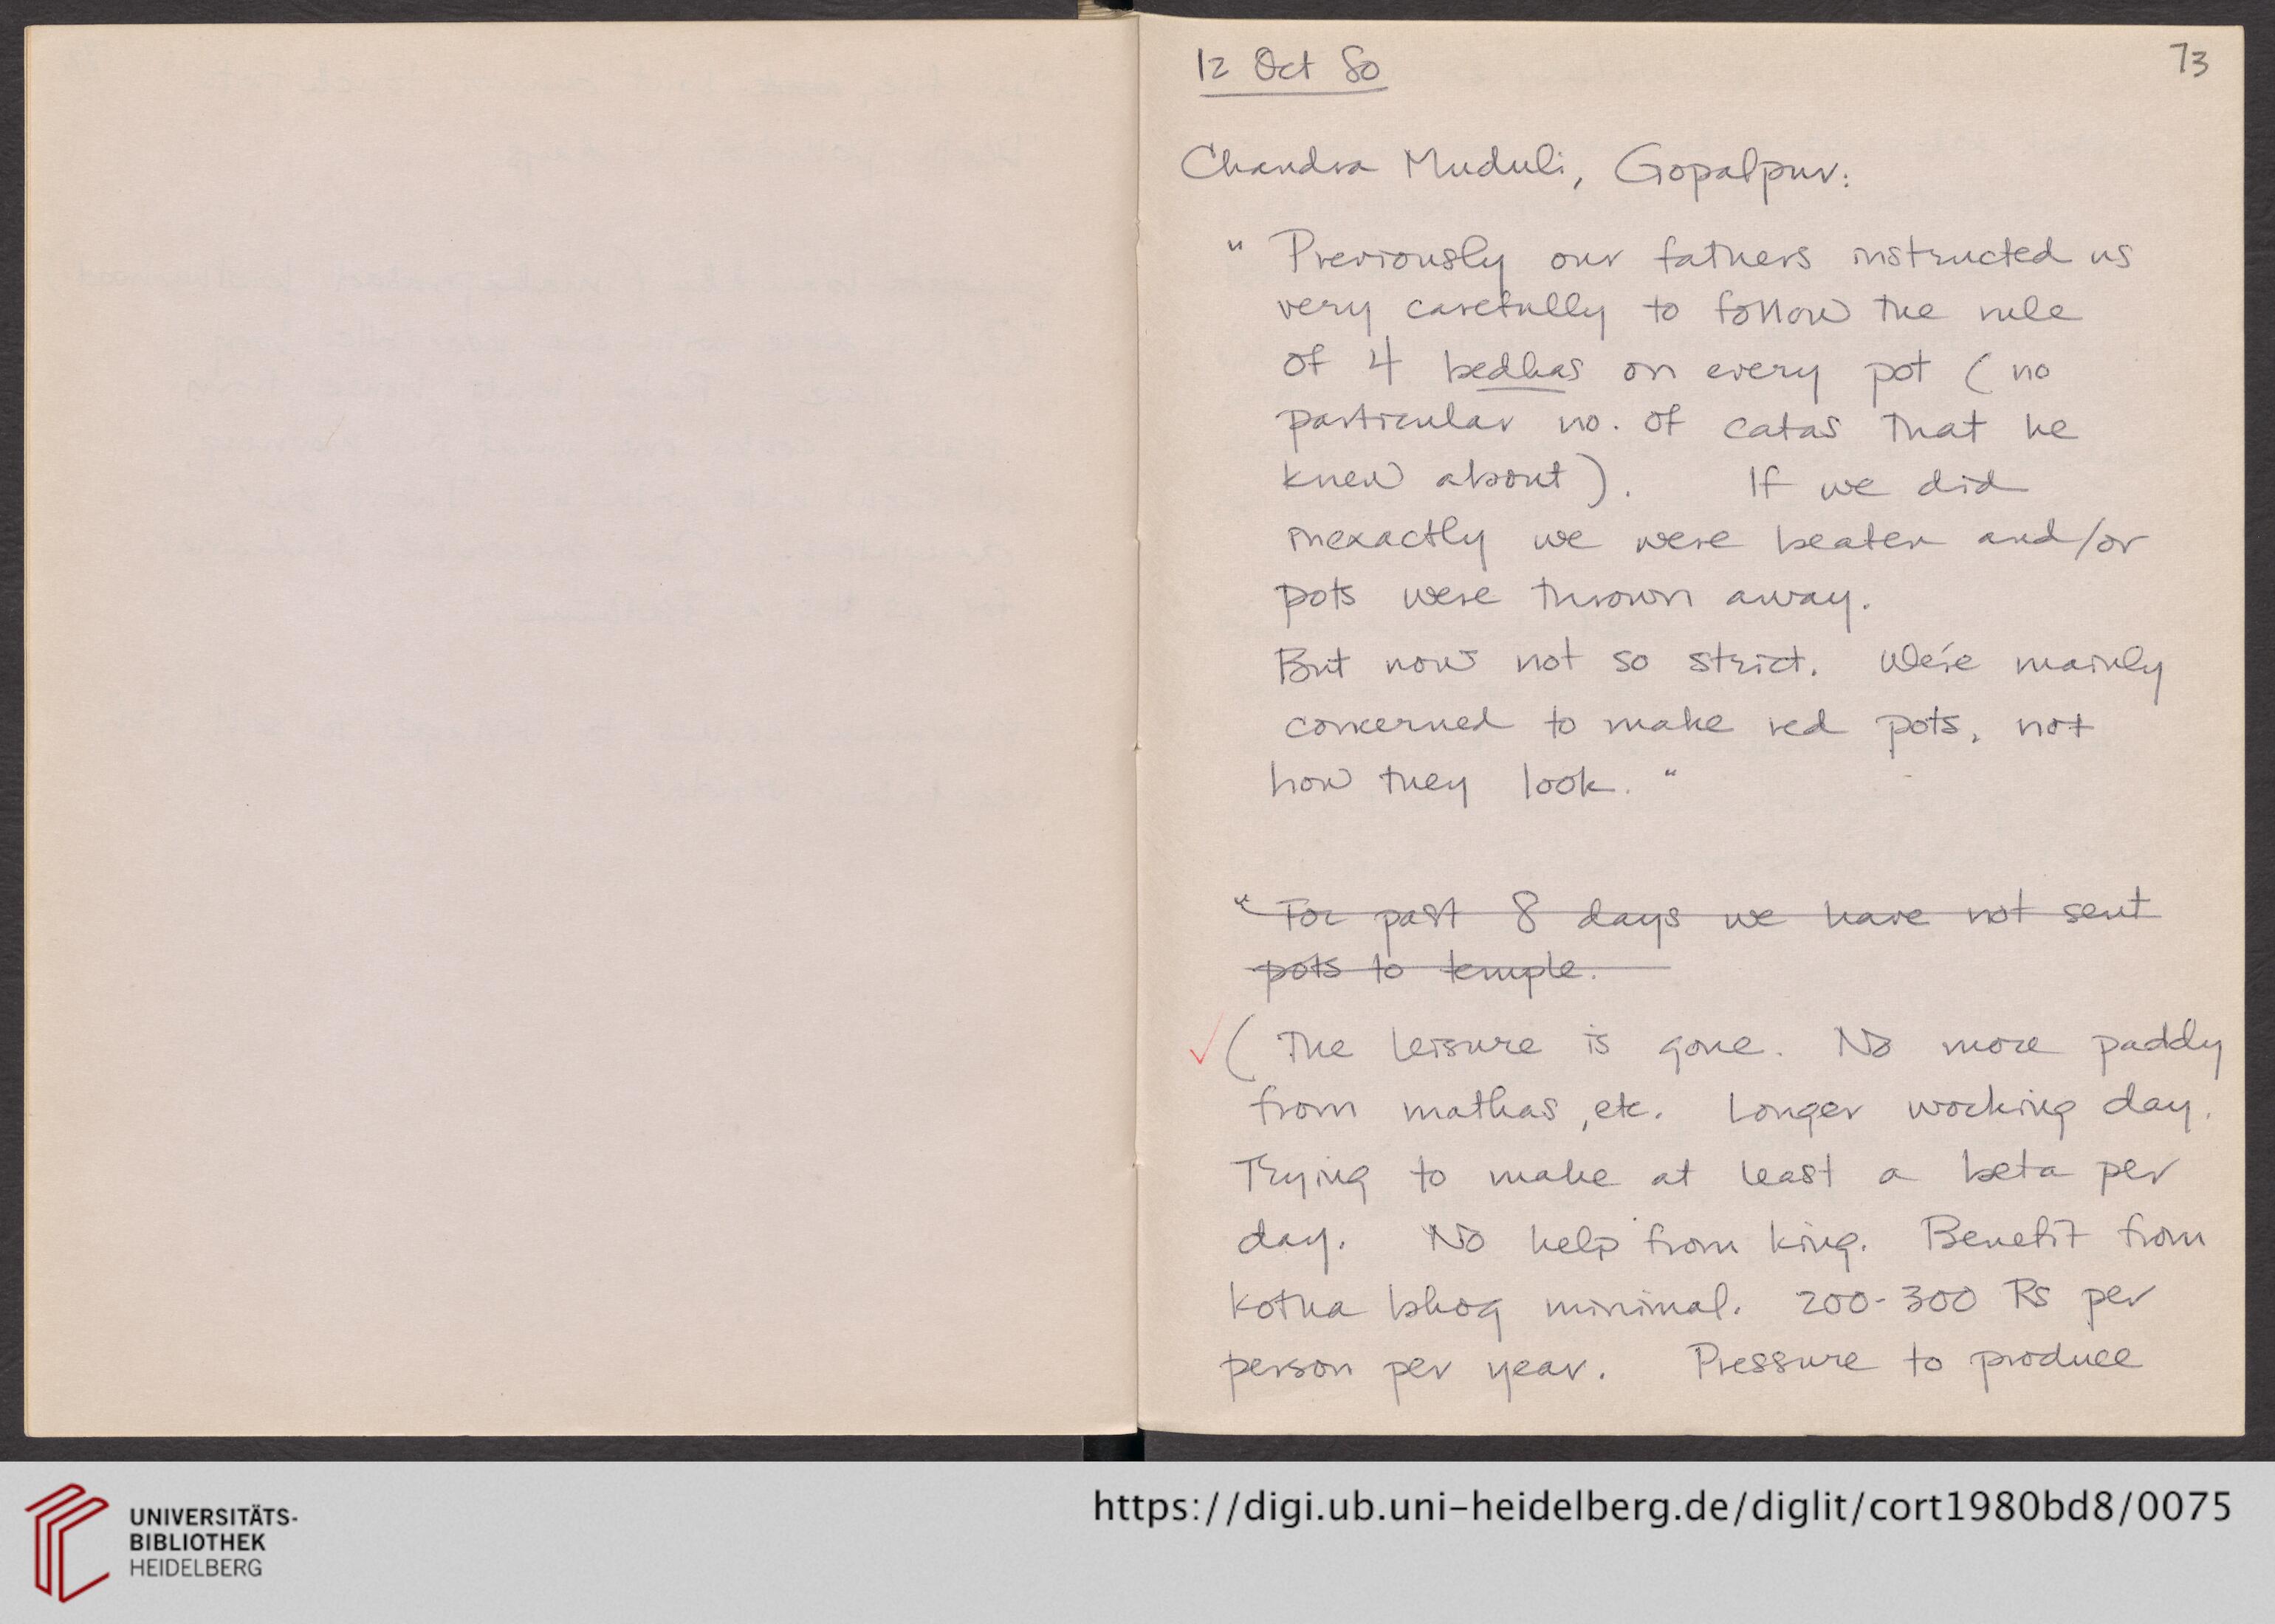 12 Oct 80
73
Chandra Muduli, Gopalpur:
" Previously our fathers instructed us
very carefully to follow the rule
of 4 bedhas on every pot ( no
particular no. of catas that he
knew about ). If we did
inexactly we were beaten and/or
pots were thrown away.
But now not so strict. We're mainly
concerned to make red pots, not
how they look. "
" For past 8 days we have not sent
pots to temple.
✓ ( The leisure is gone. No more paddy
from mathas, etc. Longer working day.
Trying to make at least a beta per
day. No help from king. Benefit from
kotha bhog minimal. 200-300 Rs per
person per year. Pressure to produce
UNIVERSITÄTS-
BIBLIOTHEK
HEIDELBERG
https://digi.ub.uni-heidelberg.de/diglit/cort1980bd8/0075